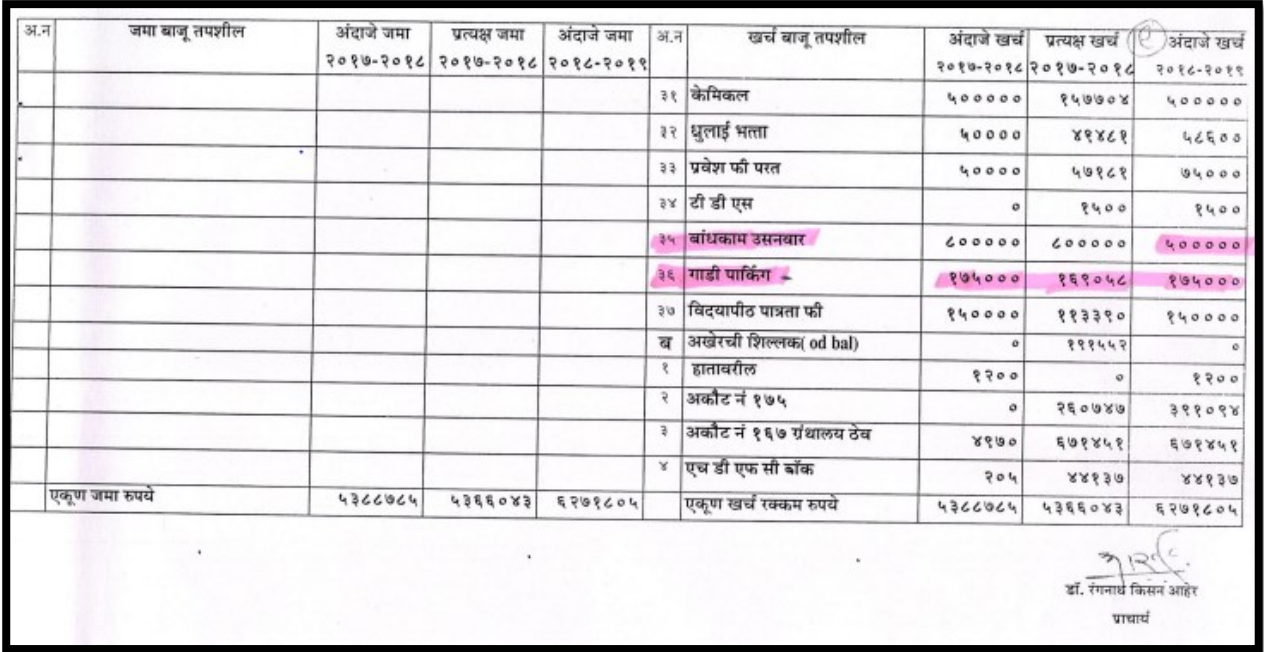 अ.न जमा बाजू तपशील अंदाजे जमा प्रत्यक्ष जमा अंदाजे जमा अ.न खर्च बाजू तपशील अंदाजे खर्च प्रत्यक्ष खर्च अंदाजे खर्च
२०१७-२०१८ २०१७-२०१८ २०१८-२०१९ २०१७-२०१८ २०१७-२०१८ २०१८-२०१९
३१ केमिकल ५००००० १५७७०४ ५०००००
३२ धुलाई भत्ता ५०००० ४९४८१ ५८६००
३३ प्रवेश फी परत ५०००० ५७१८१ ७५०००
३४ टी डी एस ० १५०० १५००
३५ बांधकाम उसनवार ८००००० ८००००० ५०००००
३६ गाडी पार्किंग - १७५००० १६९०५८ १७५०००
३७ विदयापीठ पात्रता फी १५०००० ११३३९० १५००००
ब अखेरची शिल्लक( od bal) ० १९१५५२ ०
१ हातावरील १२०० ० १२००
२ अकौट नं १७५ ० २६०७४७ ३९१०९४
३ अकौट नं १६७ ग्रंथालय ठेव ४९७० ६७१४५१ ६७१४५१
४ एच डी एफ सी बॉक २०५ ४४१३७ ४४१३७
एकूण जमा रुपये ५३८८७८५ ५३६६०४३ ६२७१८०५ एकूण खर्च रक्कम रुपये ५३८८७८५ ५३६६०४३ ६२७१८०५
डॉ. रंगनाथ किसन आहेर
प्राचार्य